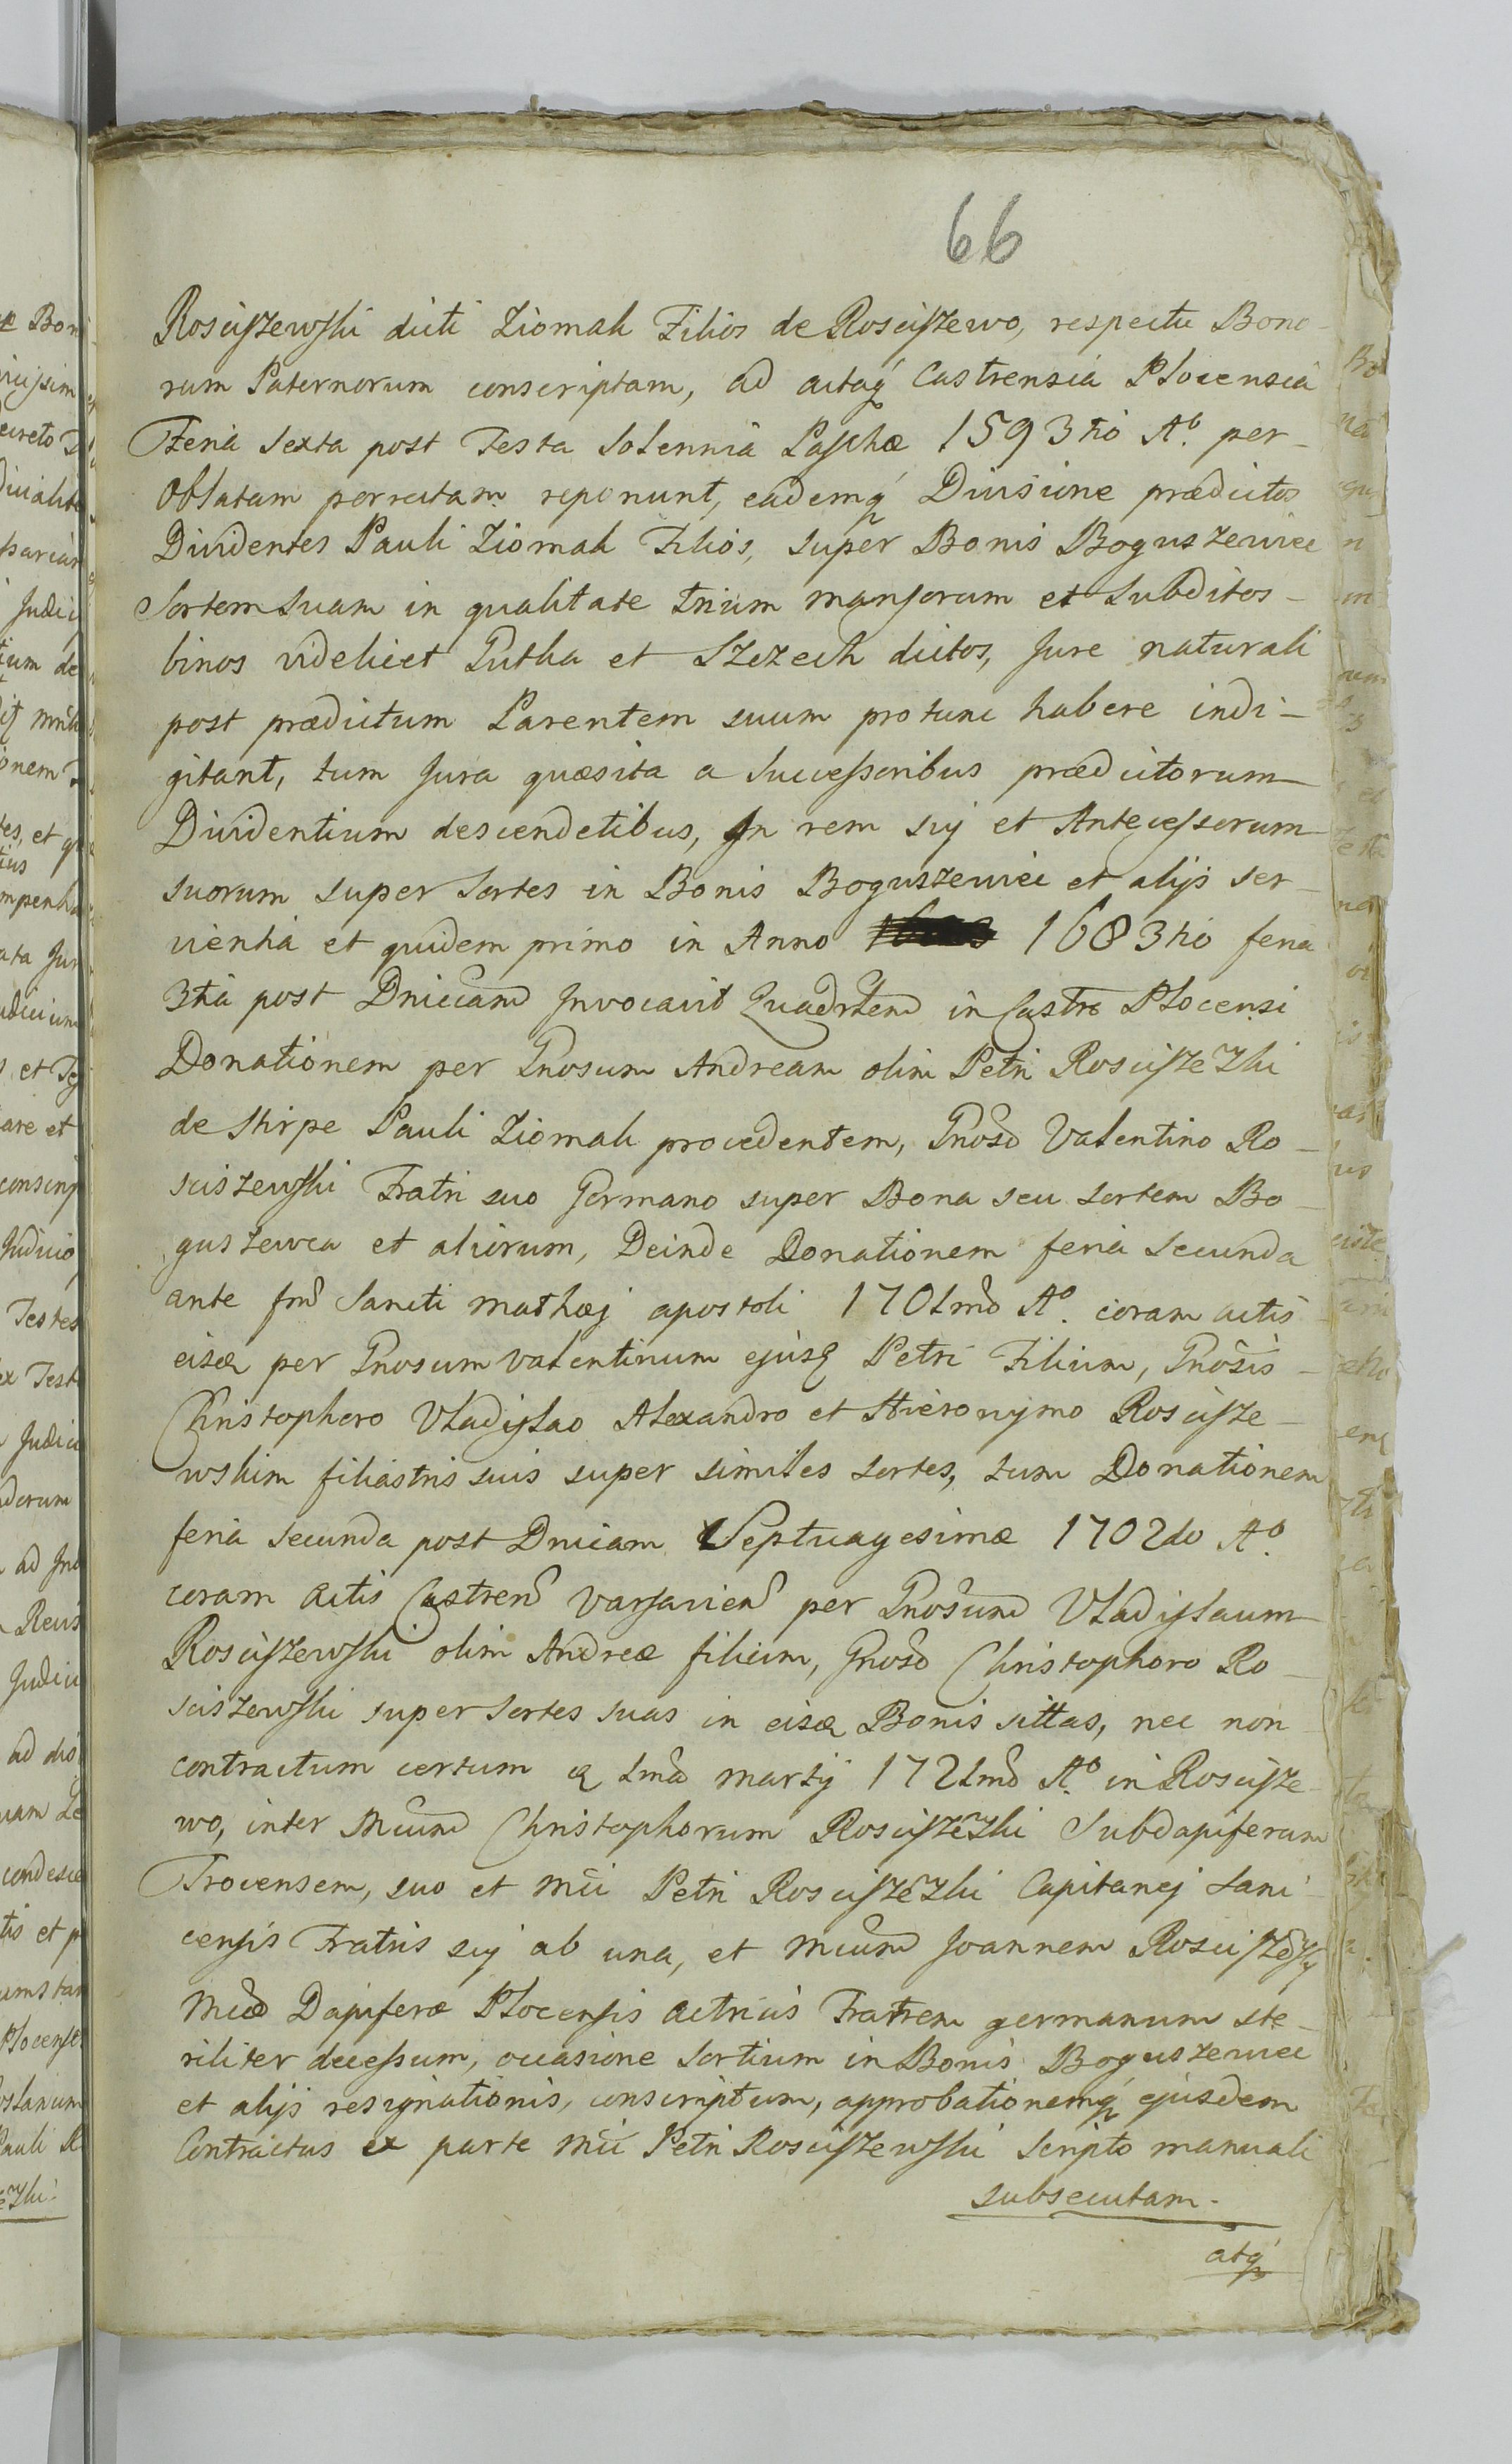 66
Rosciszewski dicti Ziomak Filios de Rosciszewo, respectu Bono-
rum Paternorum conscriptam, ad actaq́ Castrensia Plocensia
Feria Sexta post Festa Solennia Paschæ 1593tio Aº. per-
Oblatam porrectam reponunt, eademq́ Divisione prædictos
Dividentes Pauli Ziomak Filios, super Bonis Boguszewiec
Sortem Suam in qualitate trium mansorum et Subditos-
binos videlicet Putka et Szczech dictos, Jure naturali
post prædictum Parentem suum protunc habere indi-
gitant, tum Jura quæsita a Successoribus prædictorum-
Dividentium descendetibus, In rem sij et Antecessorum-
suorum super Sortes in Bonis Boguszewiec et alijs ser-
vientia et quidem primo in Anno 1683tio feria
3tia post Dnicam Invocavit Quadrlem in Castro Plocensi
Donationem per Gnosum Andream olim Petri Rosciszewski
de Stirpe Pauli Ziomak procedentem, Gnoso Valentino Ro-
sciszewski Fratri suo Germano super Bona seu sortem Bo-
guszewca et aliorum, Deinde Donationem feria secunda
ante fm Sancti mathæj apostoli 1701mo Aº. coram actis
eisd per Gnosum valentinum ejusd Petri Filium, Gnosis-
Christophoro Vladislao Alexandro et Hieronymo Roscisze-
wskim filiastris suis super similes sortes, tum Donationem
feria secunda post Dnicam Septuagesimæ 1702do Aº.
coram actis Castren varsavien per Gnosum Vladislaum-
Rosciszewski olim Andreæ filium, Gnoso Christophoro Ro-
sciszewski super Sortes suas in eisd Bonis sittas, nec non
contractum certum d 1ma martij 1721mo Aº. in Roscisze-
wo, inter Mcum Christophorum Rosciszewski Subdapiferum
Trocensem, suo et mci Petri Rosciszewski Capitanej
censis Fratris sij ab una, et mcum Joannem Rosciszewski
mcæ Dapiferæ Plocensis actricis Fratrem germanum ste-
riliter decessum, occasione Sortium in Bonis Boguszewiec
et alijs resignationis, conscriptum, approbationemq́ ejusdem
Contractus ex parte mci Petri Rosciszewski scripto manuali
subsecutam.
atq́